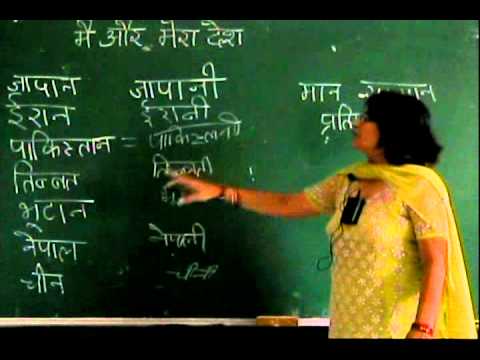 मै और मेरा देश
जापान जापानी मान
ईरान ईरानी
पाकिस्तान = पाकिस्तानी
तिब्बत तिब्बती
भूटान
नेपाल नेपाली
चीन चीनी